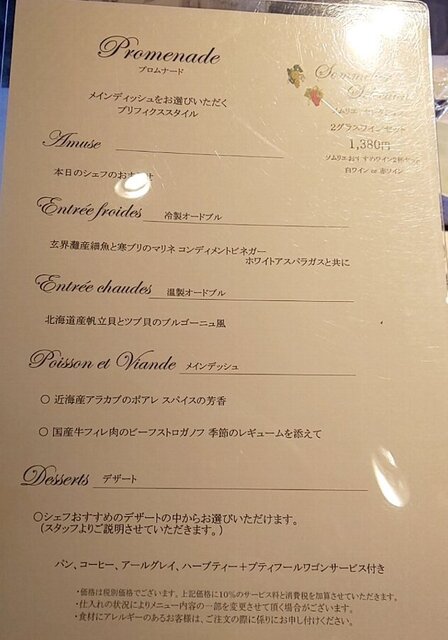 Promenade
プロムナード
メインディッシュをお選びいただく
プリフィクススタイル
2グラスワインセット
1,380円
ソムリエおすすめワイン2杯セット
白ワイン or 赤ワイン
Amuse
本日のシェフのお
Entrée froides 冷製オードブル
玄界灘産細魚と寒ブリのマリネ コンディメントビネガー
ホワイトアスパラガスと共に
Entrée chaudes 温製オードブル
北海道産帆立貝とツブ貝のブルゴーニュ風
Poisson et Viande メインデッシュ
○ 近海産アラカブのポアレ スパイスの芳香
○ 国産牛フィレ肉のビーフストロガノフ 季節のレギュームを添えて
Desserts デザート
○シェフおすすめのデザートの中からお選びいただけます。
（スタッフよりご説明させていただきます。）
パン、コーヒー、アールグレイ、ハーブティー＋プティフールワゴンサービス付き
・価格は税別価格でございます。上記価格に10％のサービス料と消費税を加算させていただきます。
・仕入れの状況によりメニュー内容の一部を変更させて頂く場合がございます。
・食材にアレルギーのあるお客様は、ご注文の際に係りにお申し付けください。